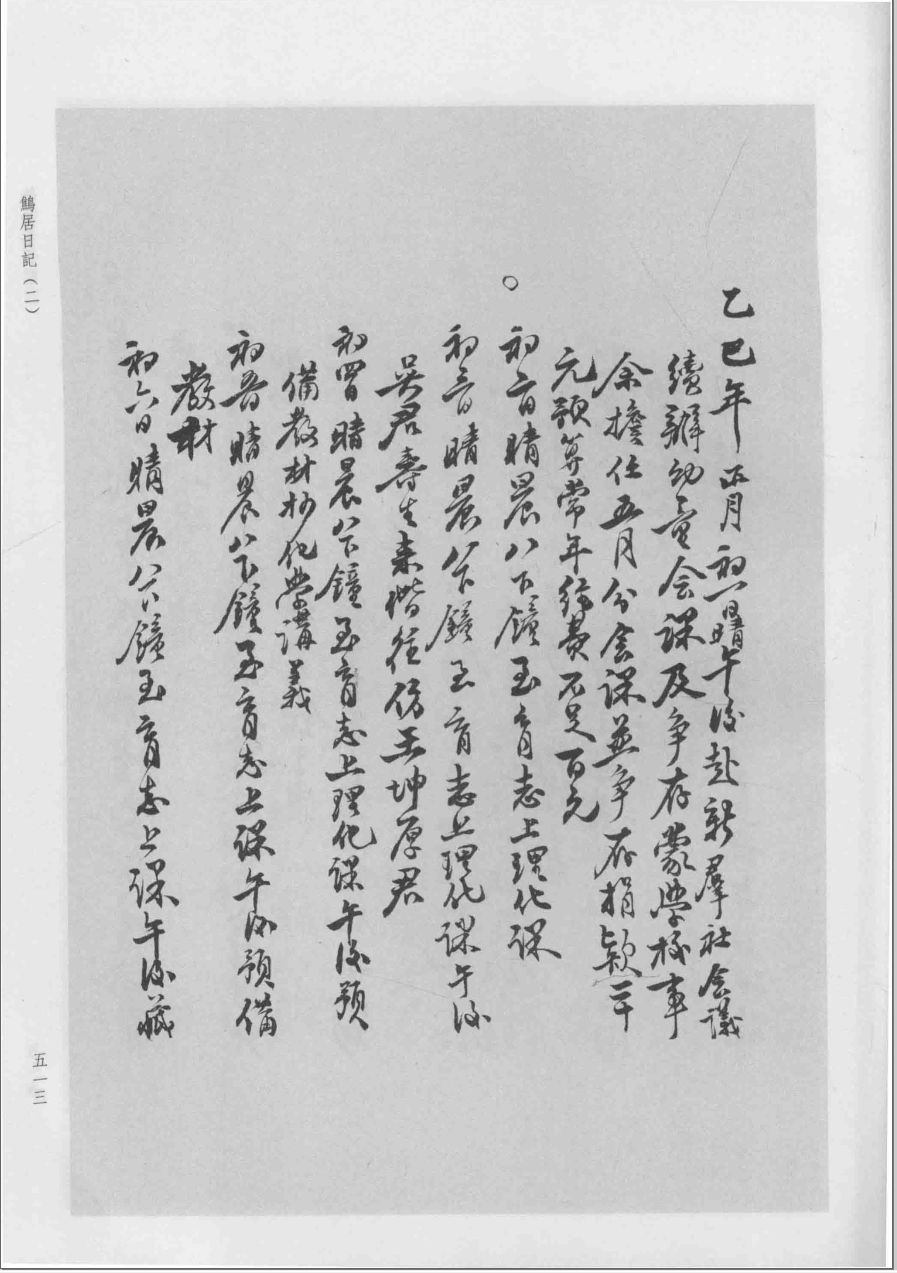 乙巳年正月初一日晴午後赴新羣社会議
續辦幼童会課及争存蒙學校事
余擔任五月分会課並争存捐款二十
元預算常年經費不足百元
○
初二日晴晨八下鐘至育志上理化課
初三日晴晨八下鐘至育志上理化課午後
吴君壽生来偕往訪王坤厚君
初四日晴晨八下鐘至育志上理化課午後預
備教材抄化學講義
初五日晴晨八下鐘至育志上課午後預備
教材
初六日晴晨八下鐘至育志上課午後藏
鷦居日記（二）
五一三